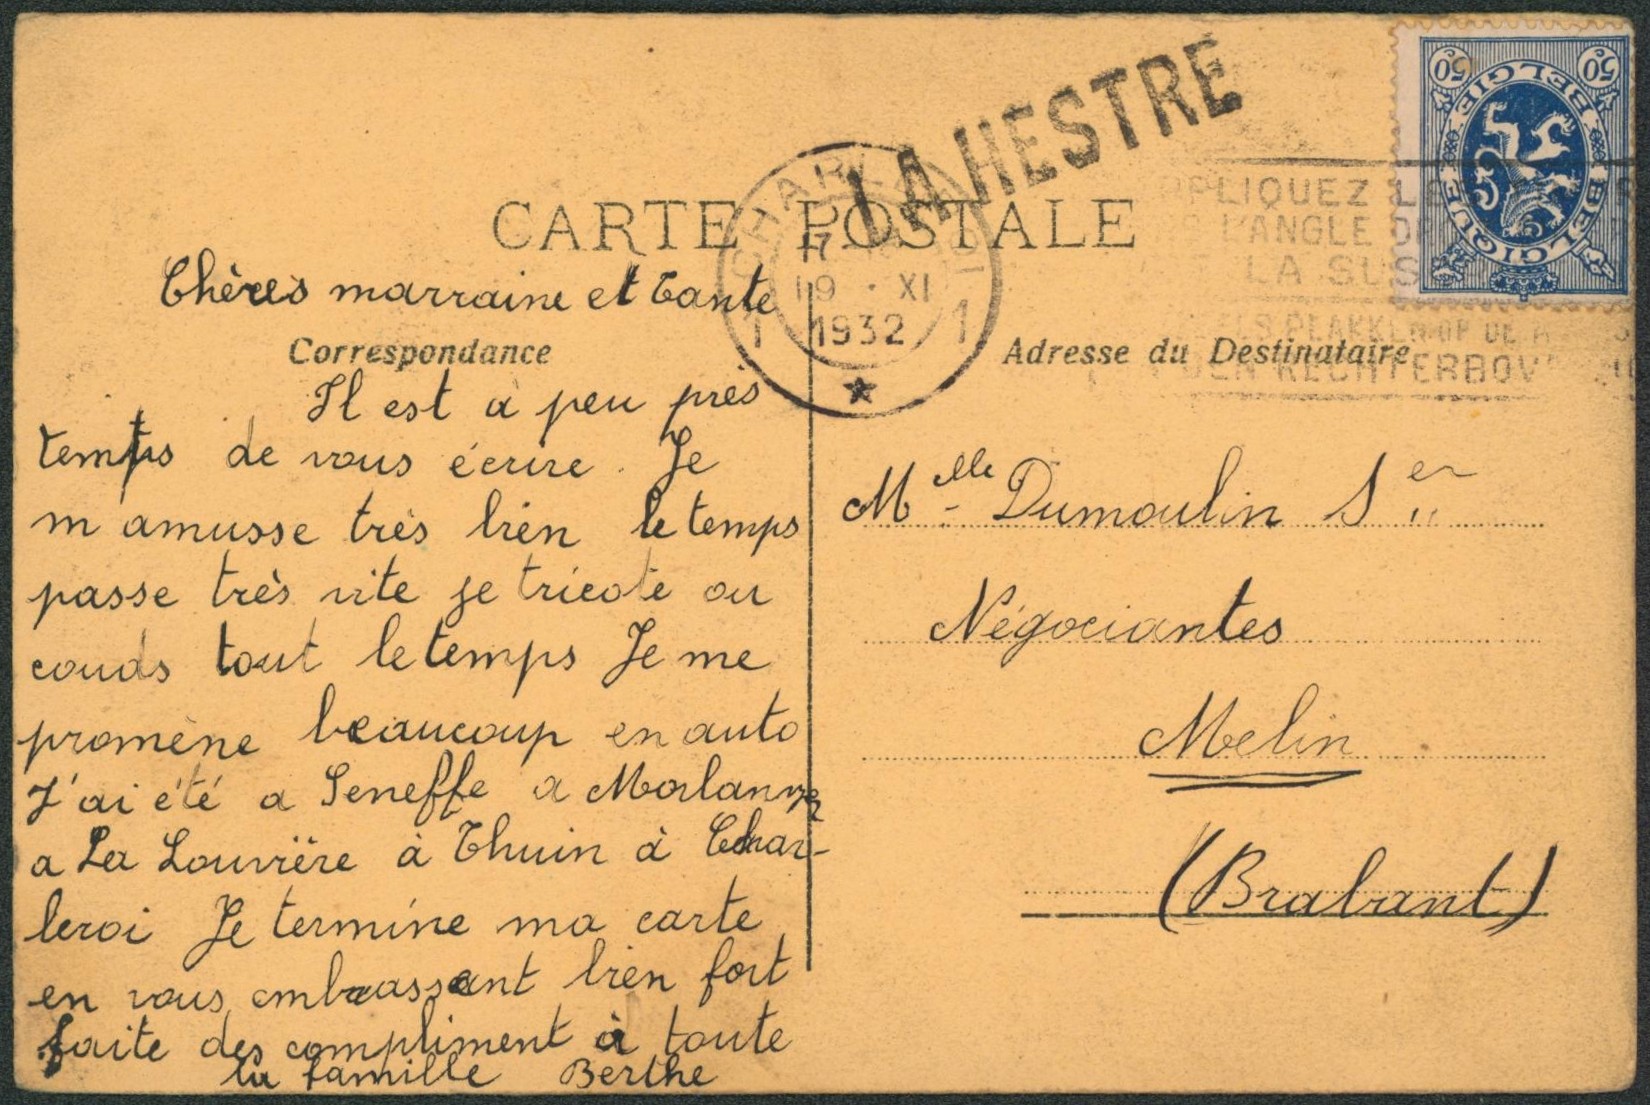 LA HESTRE
CARTE POSTALE
50 50
BELGIE BELGIQUE
CHARLEROI
19 · XI
1932
1 1
LIQUEZ LE
L'ANGLE
LA SUS
PLAKKEN OP DE
RECHTERBOV
Chères marraine et Tante
Correspondance
Il est à peu près
temps de vous écrire. Je
m amusse très bien le temps
passe très vite je tricote ou
couds tout le temps Je me
promène beaucoup en auto
J'ai été a Seneffe a Morlanwez
a La Louvière à Thuin à Char-
leroi Je termine ma carte
en vous embrassant bien fort
faite des compliment à toute
la famille Berthe
Adresse du Destinataire
Melle Dumoulin Ser
Négociantes
Melin
(Brabant)